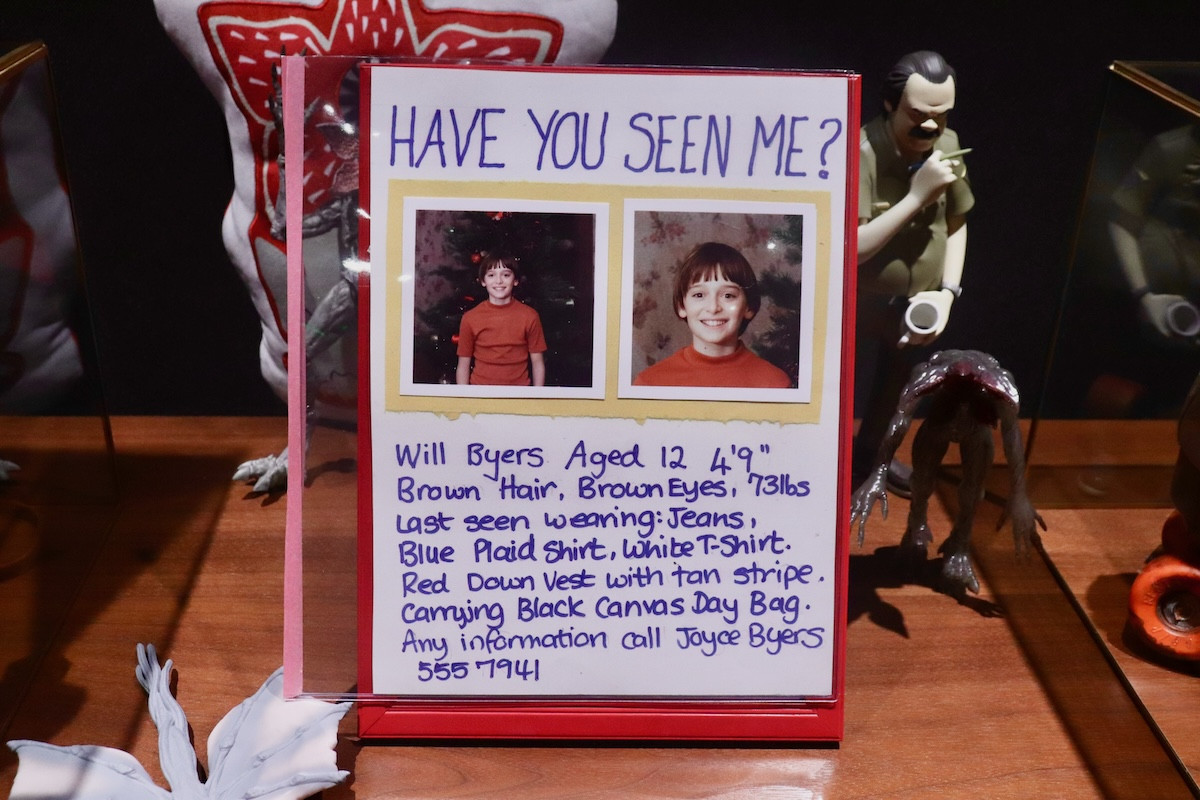 HAVE YOU SEEN ME?
Will Byers Aged 12 4'9"
Brown Hair, Brown Eyes, 73lbs
Last seen wearing: Jeans,
Blue Plaid Shirt, White T-Shirt.
Red Down Vest with tan stripe.
Carrying Black Canvas Day Bag.
Any information call Joyce Byers
555 7941